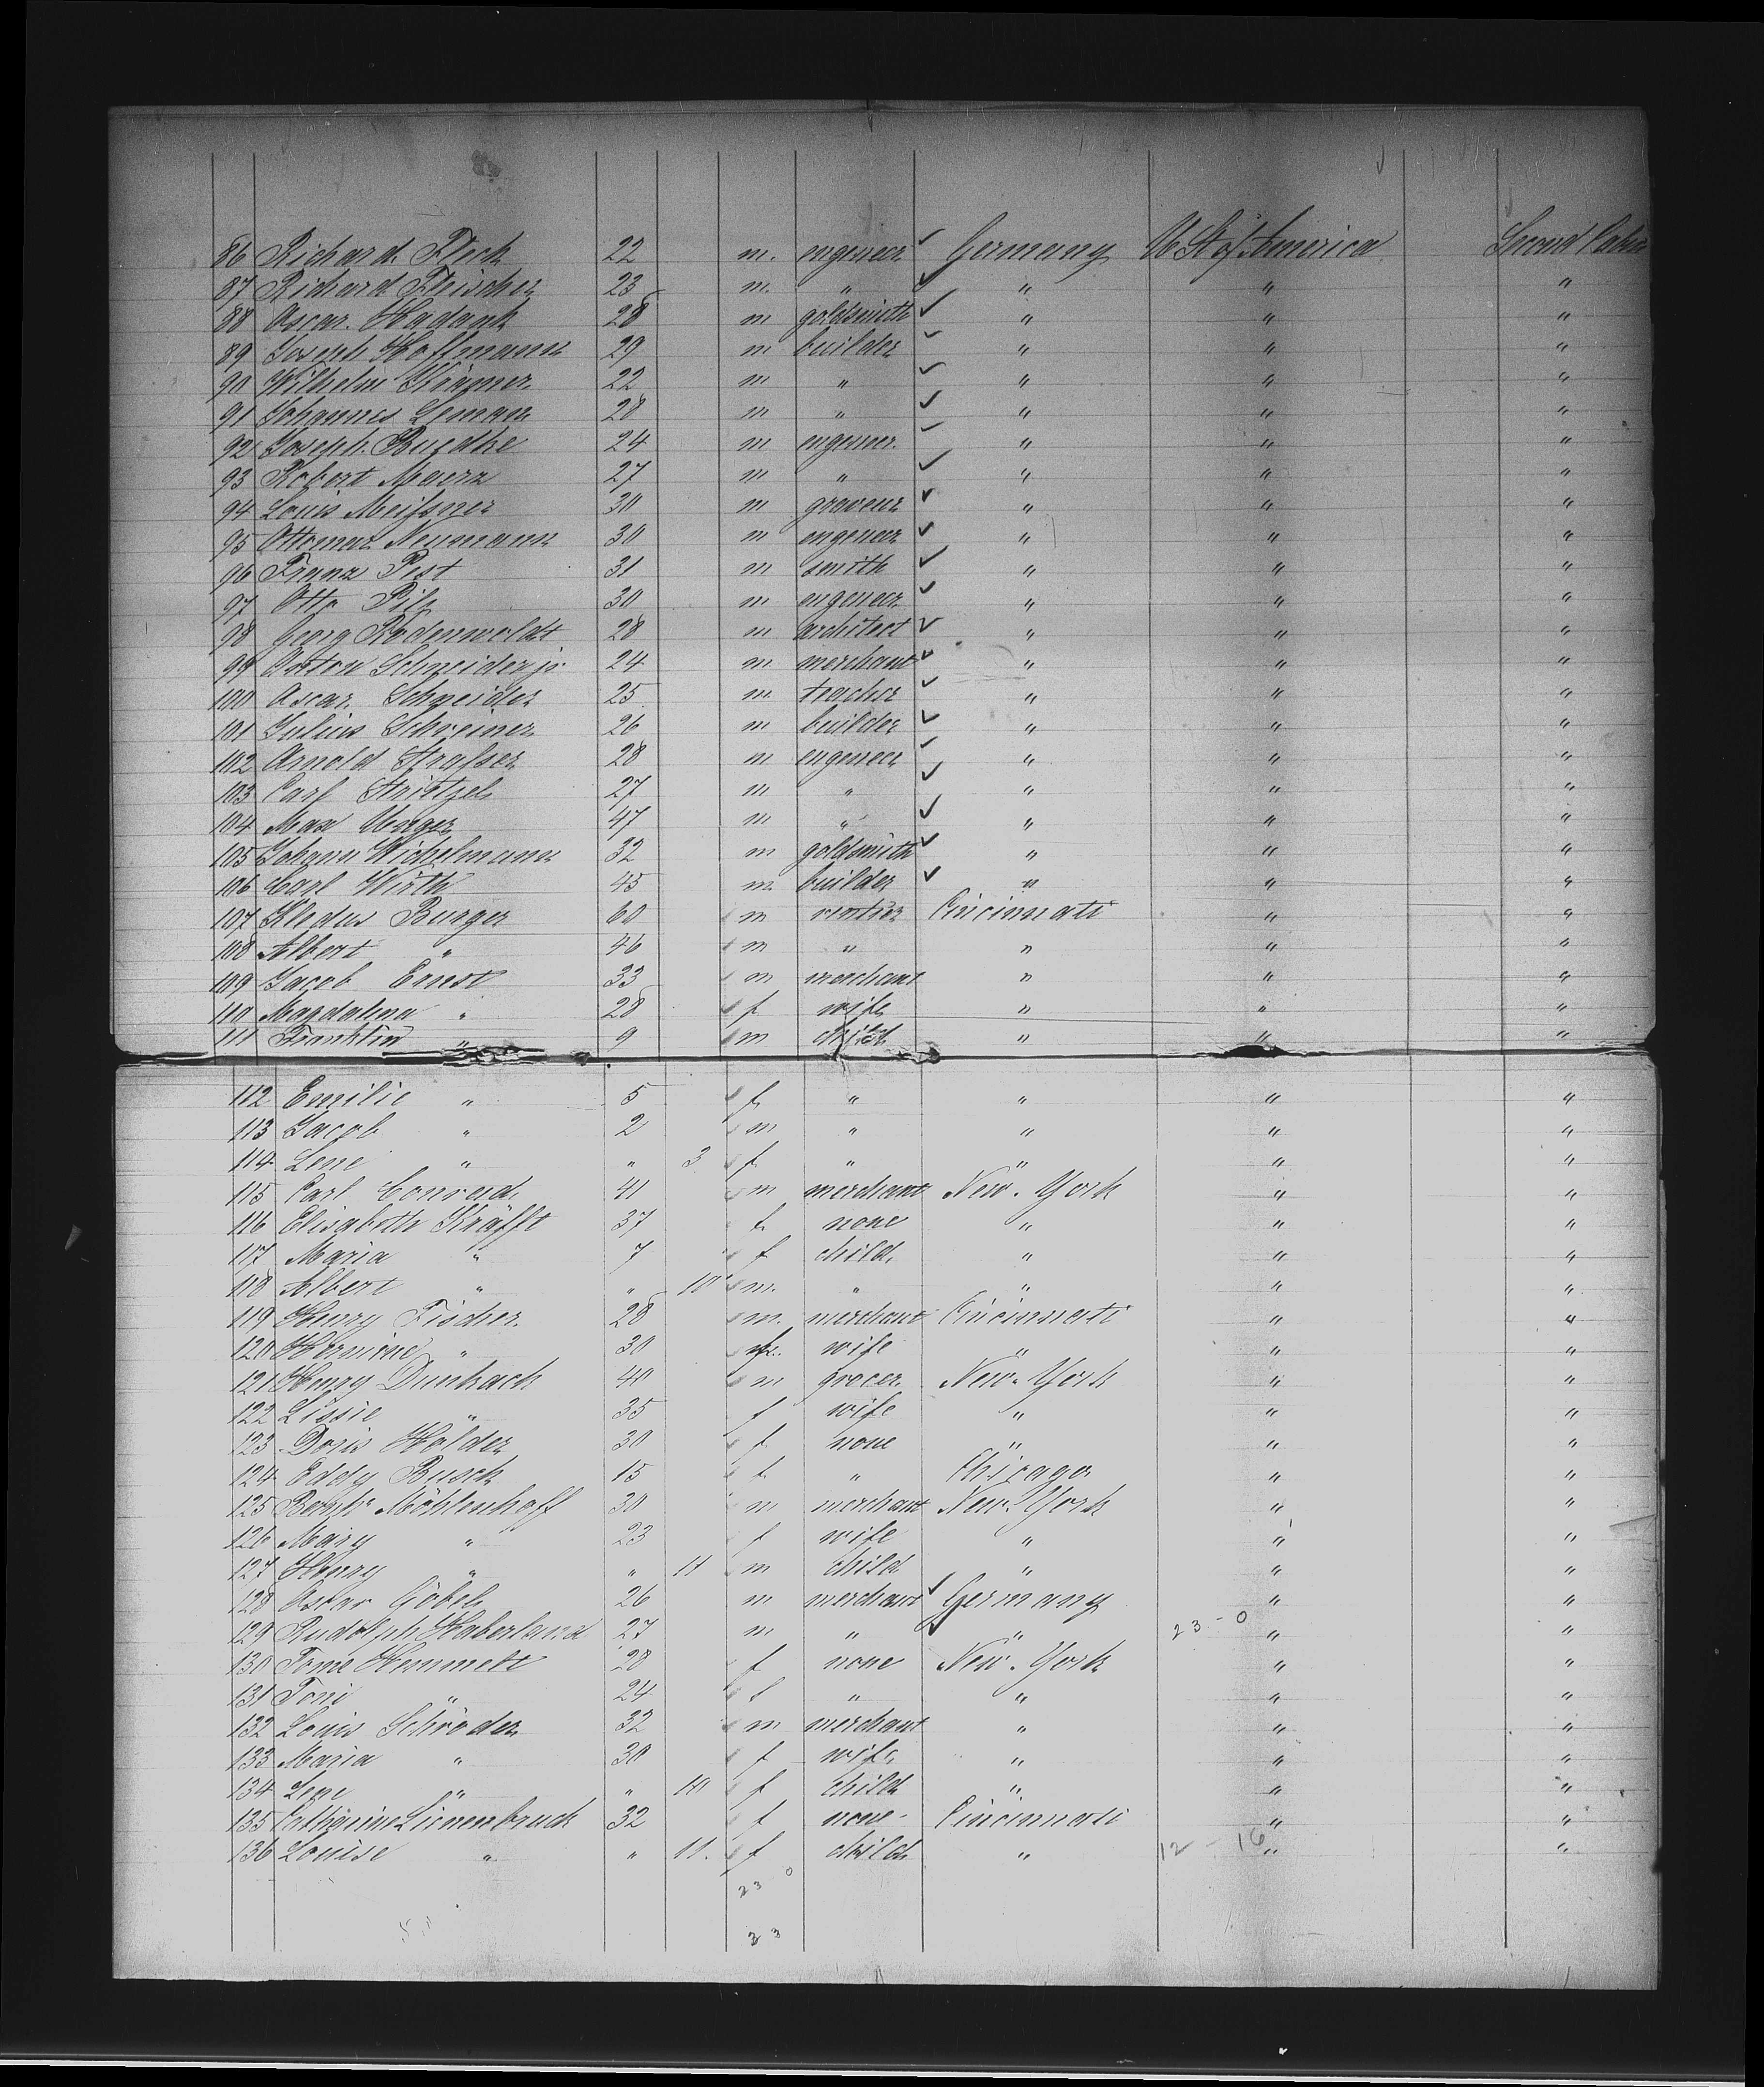 86 Richard Fleck 22 m. engeneer ✓ Germany U St of America Second Cabin
87 Richard Fleischer 23 m. " ✓ " " "
88 Oscar. Hadank 28 m goldsmith ✓ " " "
89 Joseph Hoffmann 29 m builder ✓ " " "
90 Wilhelm 22 m " ✓ " " "
91 Johannes Lemann 28 m " ✓ " " "
92 Joseph. 24 m engeneer. ✓ " " "
93 Robert Maerz 27 m " ✓ " " "
94 Louis Meißner 30 m graveur ✓ " " "
95 Ottomar Neumann 30 m engeneer ✓ " " "
96 Franz Pest 31 m smith ✓ " " "
97 Otto Pilz 30 m engeneer ✓ " " "
98 Georg Rodenwoldt 28 m architect ✓ " " "
99 Anton Schneider jr 24 m merchant ✓ " " "
100 Oscar Schneider 25 m teacher ✓ " " "
101 Julius Schreiner 26 m builder ✓ " " "
102 Arnold Straßer 28 m engeneer ✓ " " "
103 Carl Stritzel 27 m " ✓ " " "
104 Max Unger 47 m " ✓ " " "
105 Johann Wichelmann 32 m goldsmith ✓ " " "
106 Carl Wirth 45 m. builder ✓ " " "
107 Burger 60 m rentier Cincinnati " "
108 Albert " 46 m " " " "
109 Jacob Ernst 33 m merchant " " "
110 Magdalena " 28 f wife " " "
111 Franklin " 9 m child " " "
112 Emilie " 5 f " " " "
113 Jacob " 2 m " " " "
114 Lene " " 3 f " " " "
115 Carl Conrad 41 m merchant New-York " "
116 Elisabeth Kräfft 37 f none " " "
117 Maria " 7 f child " " "
118 Albert " " 10 m. " " " "
119 Henry Fischer 28 m. merchant Cincinnati " "
120 Hermine " 30 f. wife " " "
121 Henry Dunbach 40 m grocer. New-York " "
122 Lissie " 35 f wife " " "
123 Doris Holder 30 f none " " "
124 Eddy Busch 15 f " Chicago " "
125 Möhlenhoff 30 m merchant New-York " "
126 Mary " 23 f wife " " "
127 Henry " " 11 m child " " "
128 Oscar Göbel 26 m merchant ✓ Germany " "
129 Rudolph Haberland 27 m " ✓ " 23-0 " "
130 Hemmelt 28 f none New-York " "
131 Toni " 24 f " " " "
132 Louis Schröder 32 m merchant " " "
133 Maria " 30 f wife " " "
134 Lene " " 10 f child " " "
135 Catharine 32 f none Cincinnati " "
136 Louise " " 11. f child " 12 - 16 " "
23 0
23